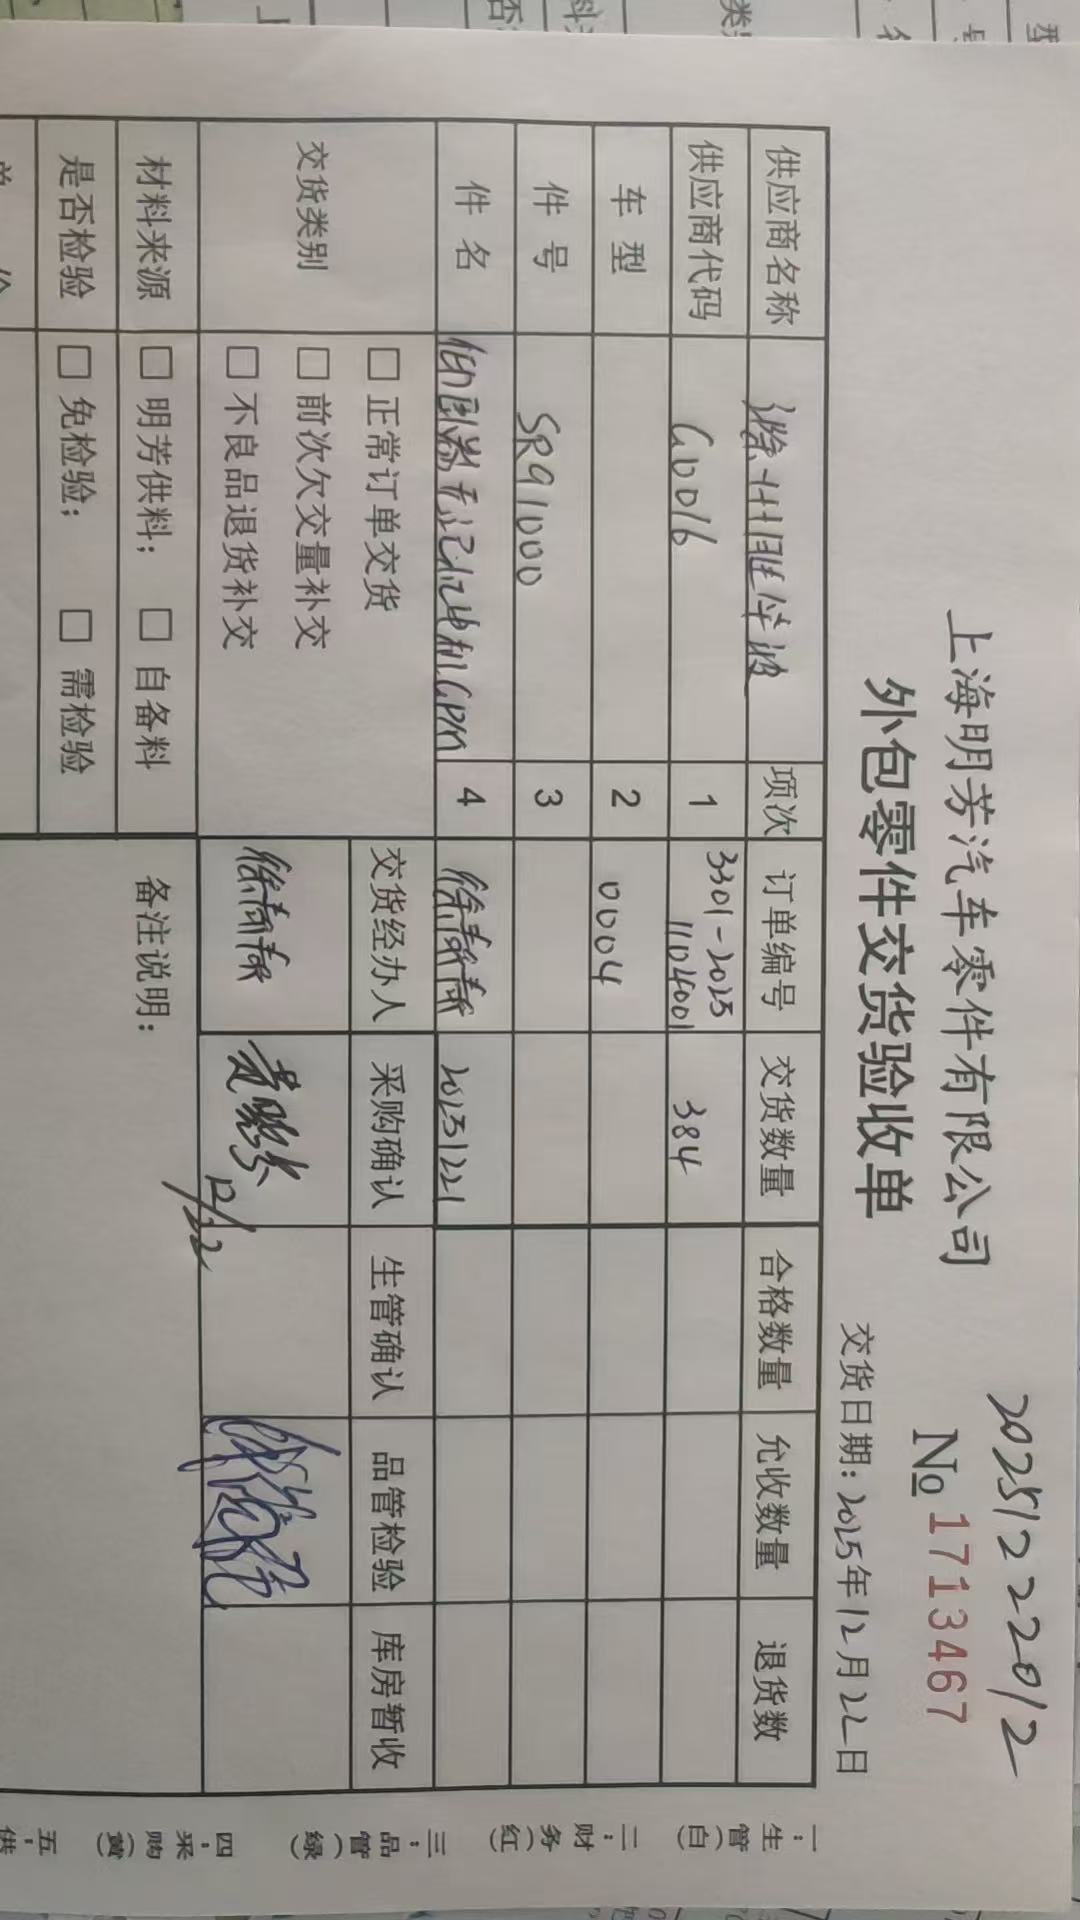 20251222012
上海明芳汽车零件有限公司
№ 1713467
外包零件交货验收单
交货日期: 2025年12月22日
供应商名称 滁州 项次 订单编号 交货数量 合格数量 允收数量 退货数
供应商代码 G0016 1 3301-2025 11104001 384
车 型 2 0004
件 号 SR91000
3
件 名 4 20251221
交货类别
□ 正常订单交货
□ 前次欠交量补交
□ 不良品退货补交
交货经办人 采购确认 生管确认 品管检验 库房暂收
12/22
材料来源 □ 明芳供料; □ 自备料
是否检验 □ 免检验; □ 需检验
备注说明:
一:生管(白)
二:财务(红)
三:品管(绿)
四:采购(黄)
五:供